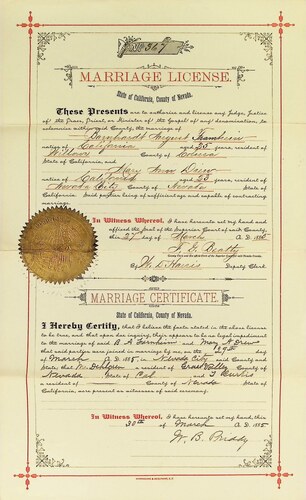 No 367
MARRIAGE LICENSE.
State of California, County of Nevada.
These Presents are to authorize and license any Judge, Justice
of the Peace, Priest, or Minister of the Gospel of any denomination, to
solemnize within said County, the marriage of
August
native of California aged 25 years, resident of
Williams County of Colusa
State of California, and
Mary Ann Drew
native of California aged 23 years, resident of
Nevada City County of Nevada
State of California. Said parties being of sufficient age and capable of contracting
marriage.
In Witness Whereof, I have hereunto set my hand and
affixed the Seal of the Superior Court of said County,
this 27 day of March A. D. 1885
Beatty
By W. D. Harris Deputy Clerk.
MARRIAGE CERTIFICATE.
State of California, County of Nevada.
I Hereby Certify, that I believe the facts stated in the above license
to be true, and that upon due inquiry, there appears to be no legal impediment
to the marriage of said B. A. and Mary A Drew
that said parties were joined in marriage by me, on the 29th day
of March A. D. 1885, in Nevada City County and
State; that W. a resident of Grass Valley County of
Nevada State of Cal and
a resident of County of Nevada State of
California, were present as witnesses of said ceremony.
In Witness Whereof, I have hereunto set my hand, this
30th day of March A. D. 1885
W. B. Priddy